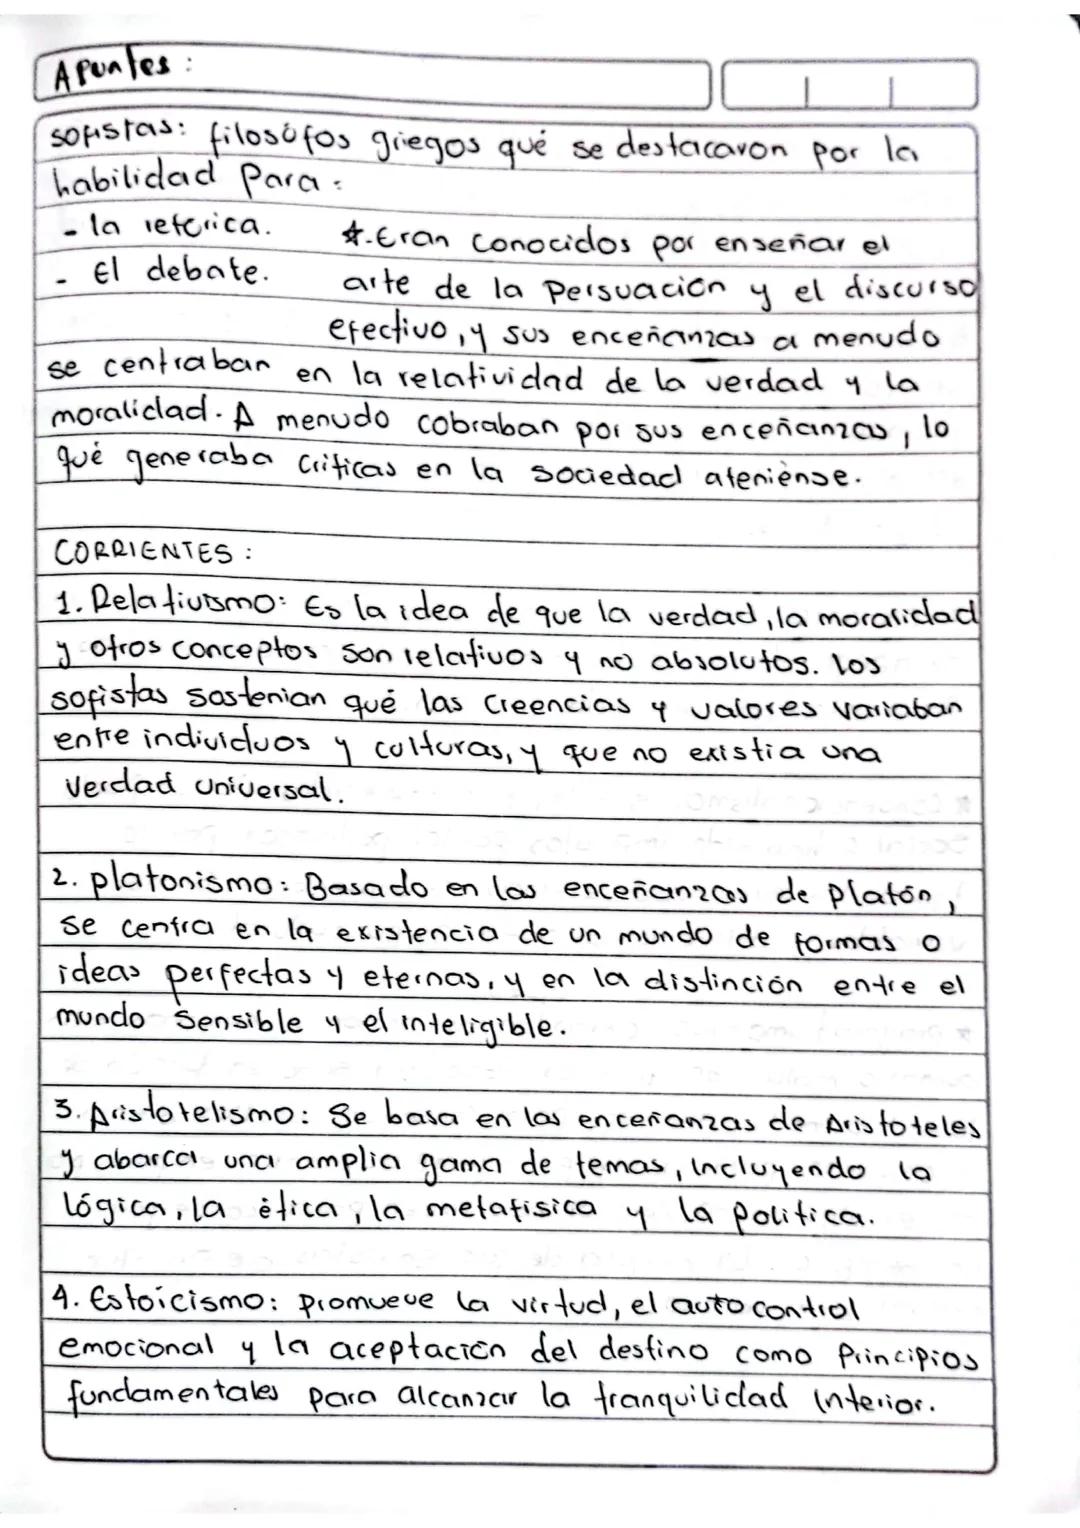 Apuntes:
sofistas: filosófos griegos qué se destacaron por la
habilidad Para:
- la retórica.
- El debate.
*.Eran conocidos por enseñar el
arte de la Persuación y el discurso
efectivo, y sus enceñanzas a menudo
se centraban en la relatividad de la verdad y la
moralidad. A menudo cobraban por sus enceñanzas, lo
qué generaba criticas en la sociedad ateniènse.
CORRIENTES:
1. Relativismo: Es la idea de que la verdad, la moralidad
y otros conceptos son relativos y no absolutos. los
sofistas sostenian qué las creencias y valores variaban
entre individuos y culturas, y que no existia una
Verdad universal.
2. platonismo: Basado en las enceñanzas de platón,
se centra en la existencia de un mundo de formas o
ideas perfectas y eternas, y en la distinción entre el
mundo Sensible y el inteligible.
3. Aristotelismo: Se basa en las enceñanzas de Aristoteles
y abarca una amplia gama de temas, incluyendo la
lógica, la ètica, la metafisica y la politica.
4. Estoicismo: promueve la virtud, el autocontrol
emocional y la aceptación del destino como Principios
fundamentales para alcanzar la tranquilidad interior.